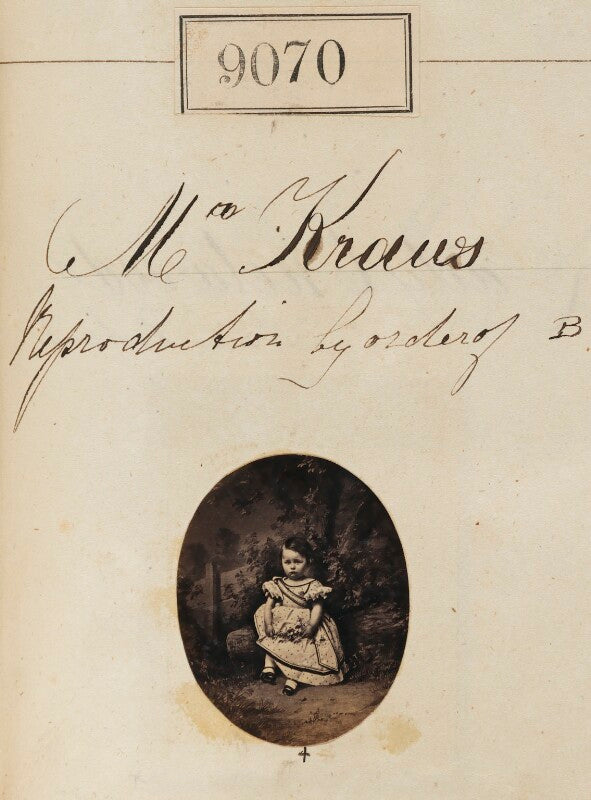 9070
Mrs Kraus
Reproduction by order of B
4